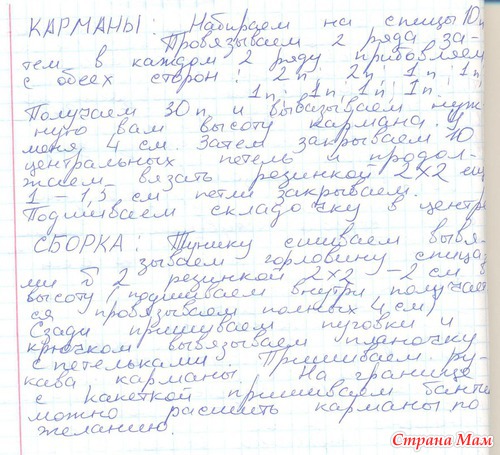 КАРМАНЫ: Набираем на спицы 10п
Провязываем 2 ряда за-
тем в каждом 2 ряду прибовляем
с обеех сторон: 2п; 2п; 1п; 1п;
1п; 1п; 1п; 1п.
Получаем 30п и вывязываем нуж
ную вам высоту кармана. У
меня 4 см. Затем закрываем 10
центральных петель и продол-
жаем вязать резинкой 2х2 ещ
1 – 1,5 см петли закрываем.
Подшиваем складочку в центр
СБОРКА: Тунику сшиваем вывя-
зываем горловину спица
ми 2 резинкой 2х2 – 2 см в
высоту (подшиваем внутри получает
ся провязываем полных 4 см)
Сзади пришиваем пуговки и
крючком вывязываем планочку
с петельками. Пришиваем ру-
кава карманы. На границе
с какеткой пришиваем банти
можно расшить карманы по
желанию.
Страна Мам